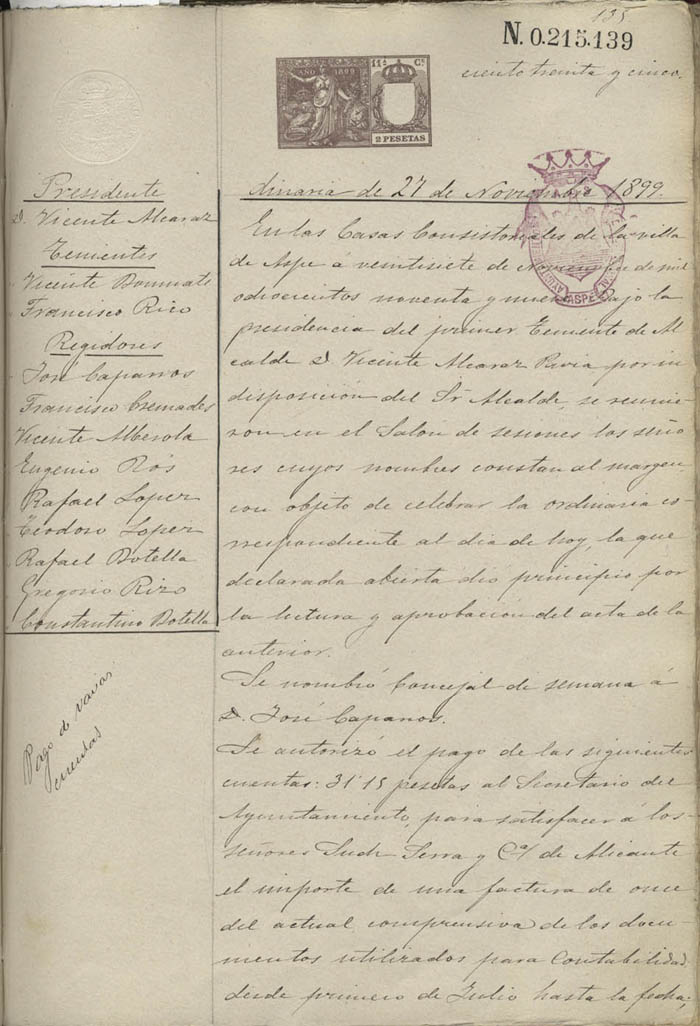 135
N. 0.215.139
ciento treinta y cinco.
AÑO 1899
11ª Cª
2 PESETAS
Presidente
D. Vicente Alcaraz
Tenientes
Vicente Bonmati
Francisco Rico
Regidores
José Caparros
Francisco Cremades
Vicente Alberola
Eugenio Rós
Rafael Lopez
Teodoro Lopez
Rafael Botella
Gregorio Rizo
Constantino Botella
Pago de varias
cuentas
dinaria de 27 de Noviembre 1899.
En las Casas Consistoriales de la villa
de Aspe á veintisiete de Noviembre de mil
ochocientos noventa y nueve: Bajo la
presidencia del primer Teniente de Al
calde D. Vicente Alcaraz Pavia por in
disposicion del Sr. Alcalde, se reunie
ron en el Salon de sesiones los seño
res cuyos nombres constan al margen
con objeto de celebrar la ordinaria co
rrespondiente al dia de hoy, la que
declarada abierta dio principio por
la lectura y aprobacion del acta de la
anterior.
Se nombró Concejal de semana á
D. José Caparros.
Se autorizó el pago de las siguientes
cuentas: 31'15 pesetas al Secretario del
Ayuntamiento, para satisfacer á los
señores Such Serra y Cª de Alicante
el importe de una factura de once
del actual comprensiva de los docu-
mentos utilizados para Contabilidad
desde primero de Julio hasta la fecha;
ASPE